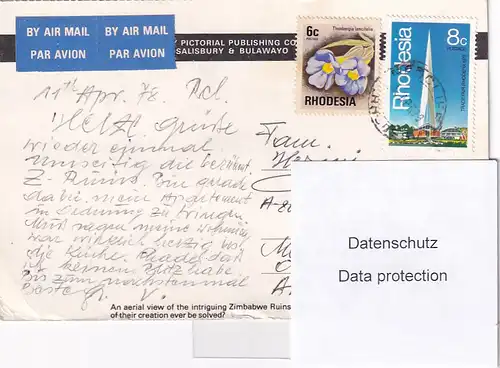 BY AIR MAIL BY AIR MAIL
PAR AVION PAR AVION
PICTORIAL PUBLISHING CO
SALISBURY & BULAWAYO
6c
Thunbergia lancifolia
RHODESIA
8c
Rhodesia
11th Apr. 78.
Herzl. Grüße
wieder einmal
umseitig die berühmt.
Z-Ruins. Bin gerade
dabei mein Apartement
in Ordnung zu bringen
Muß sagen meine
war wirklich
die Küche. Schade daß
ich keinen Platz habe.
Bis zum nächstenmal
Beste Gr. V.
Fam.
A-
Datenschutz
Data protection
An aerial view of the intriguing Zimbabwe Ruins
of their creation ever be solved?